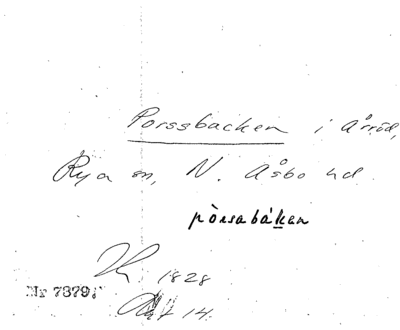 Porssbacken i Årröd,
Rya sn, N. Åsbo hd
pòrsabáken
1828
Nr 7379.
Akt 14.